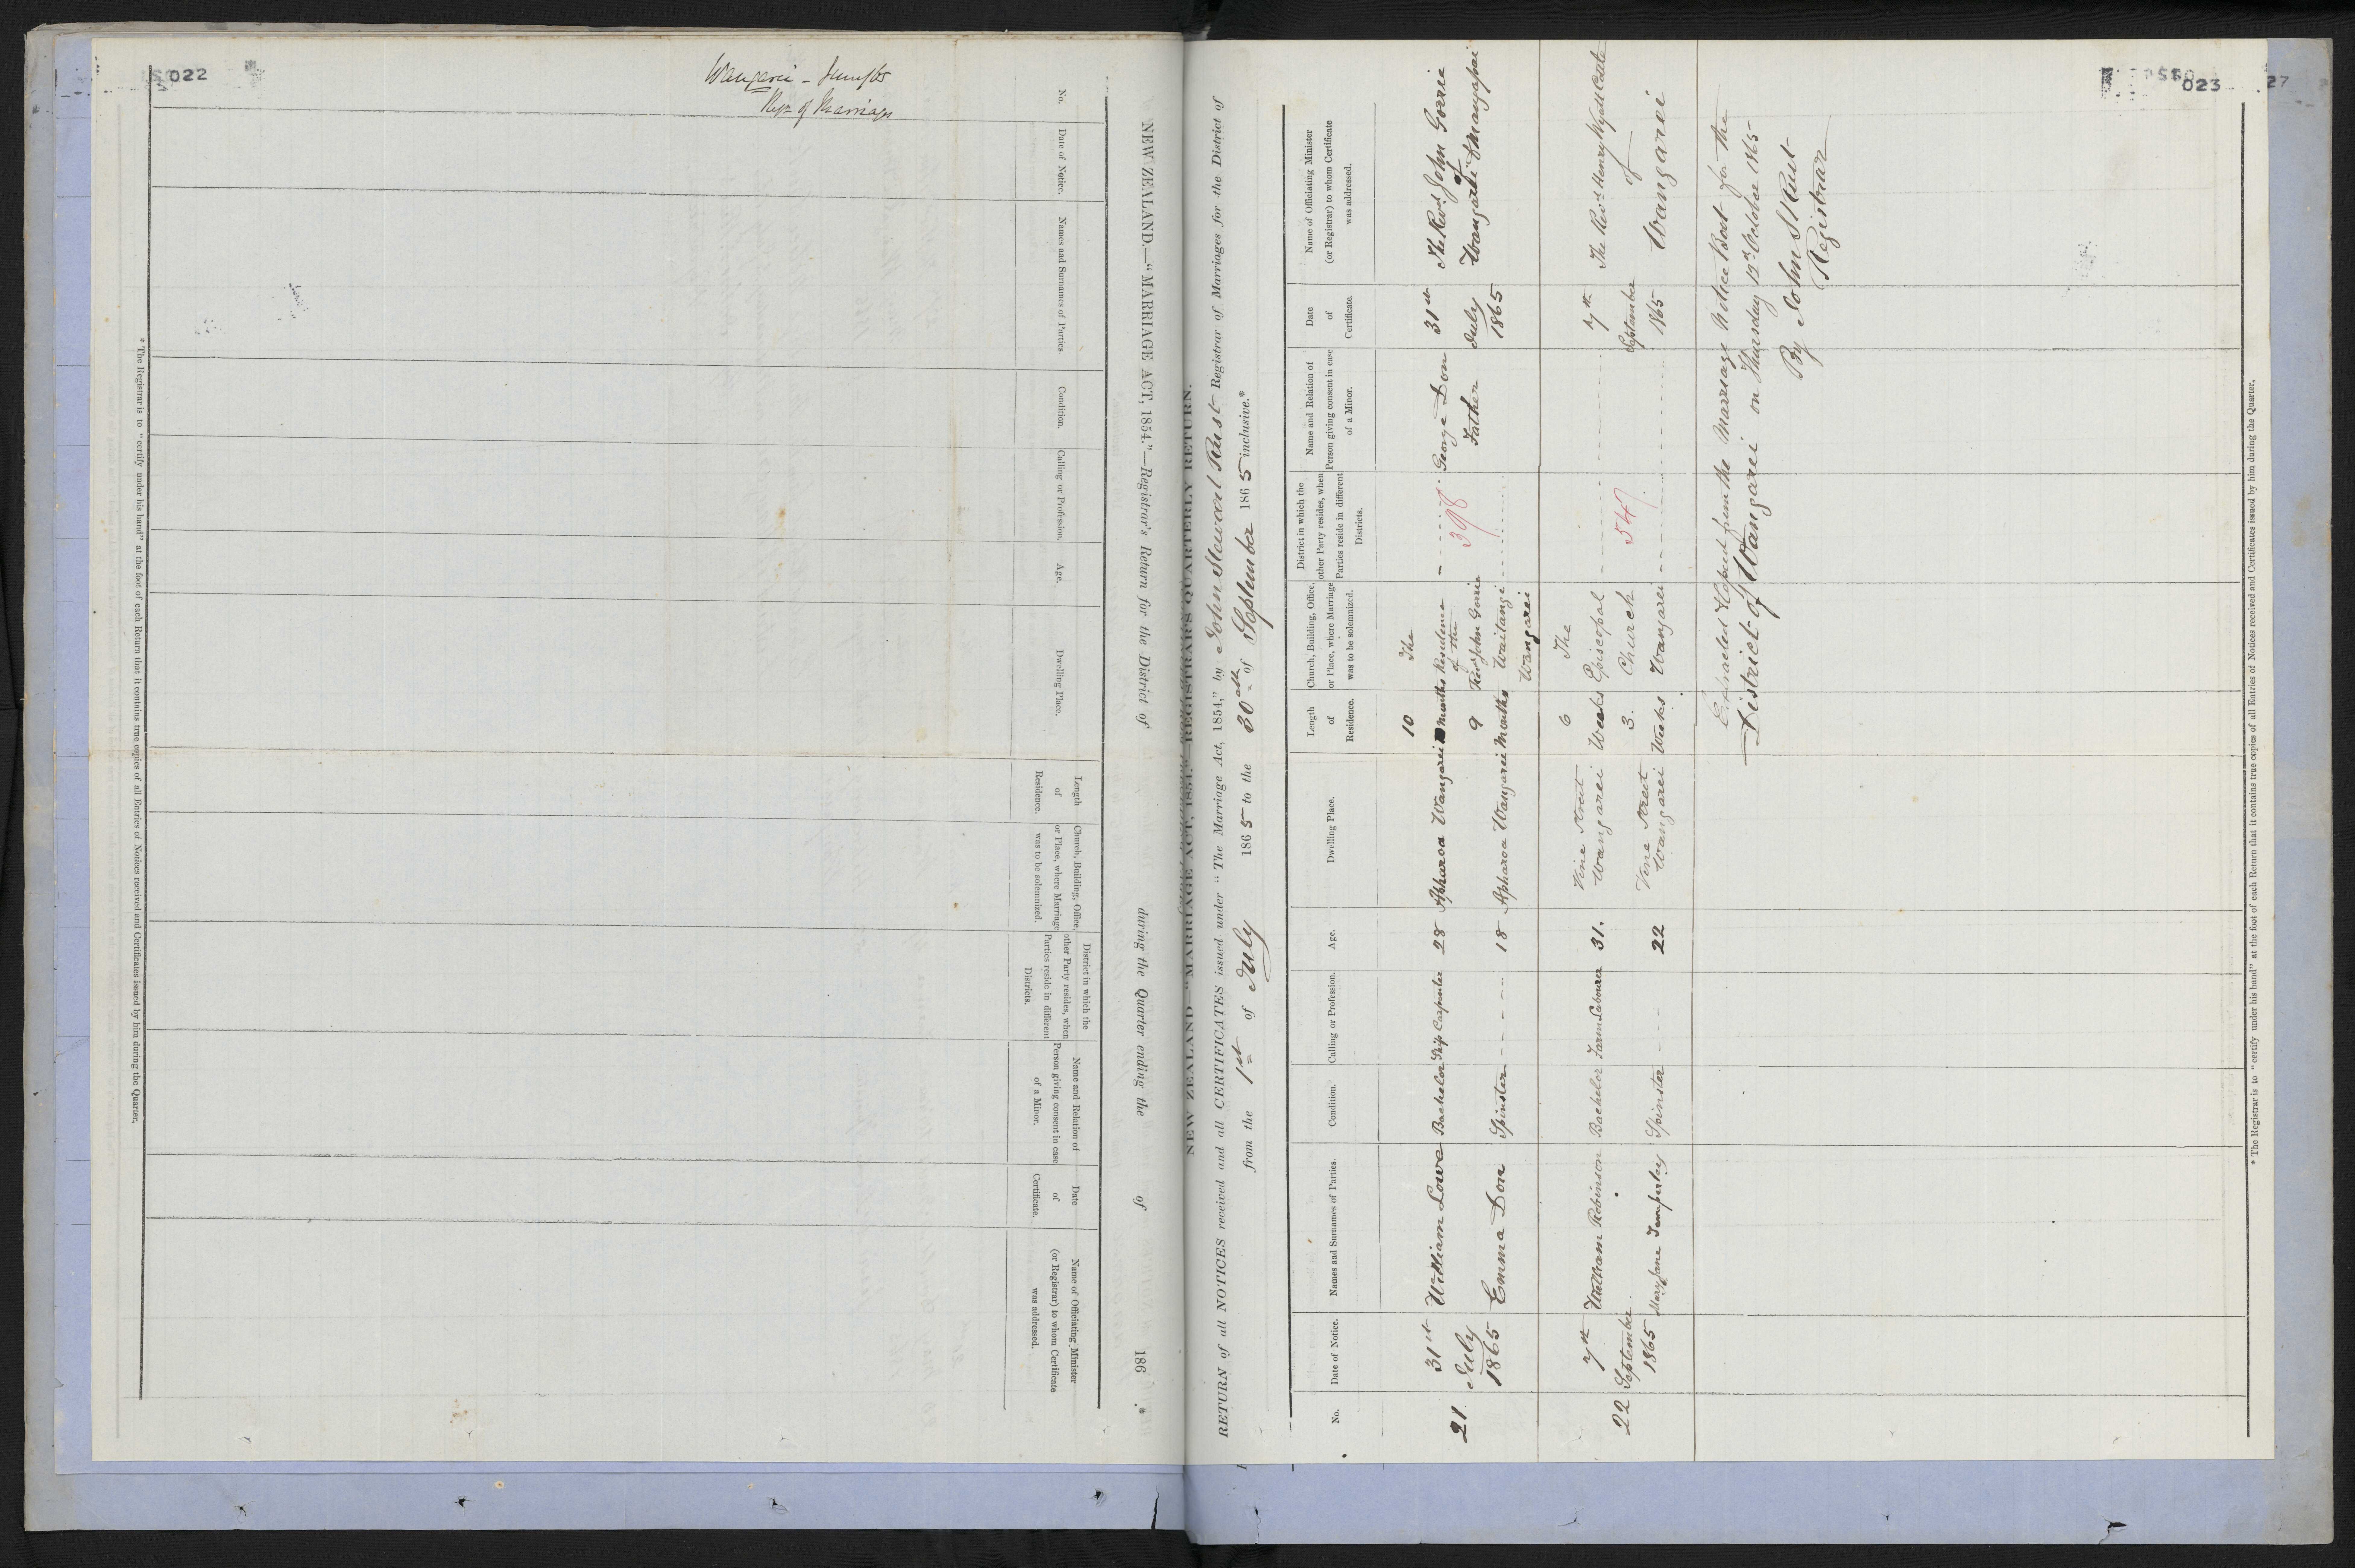 022
Wangarei - Sept 65
Regr of Marriages
NEW ZEALAND.—"MARRIAGE ACT, 1854."—Registrar's Return for the District of during the Quarter ending the of 186 .*
No.
Date of Notice.
Names and Surnames of Parties
Condition.
Calling or Profession.
Age.
Dwelling Place.
Length
of
Residence.
Church, Building, Office,
or Place, where Marriage
was to be solemnized.
District in which the
other Party resides, when
Parties reside in different
Districts.
Name and Relation of
Person giving consent in case
of a Minor.
Date
of
Certificate.
Name of Officiating Minister
(or Registrar) to whom Certificate
was addressed.
* The Registrar is to "certify under his hand" at the foot of each Return that it contains true copies of all Entries of Notices received and Certificates issued by him during the Quarter.
023
27
NEW ZEALAND—"MARRIAGE ACT, 1854,"—REGISTRAR'S QUARTERLY RETURN.
RETURN of all NOTICES received and all CERTIFICATES issued under "The Marriage Act, 1854," by John Steward Rust Registrar of Marriages for the District of
from the 1st of July 1865 to the 30th of September 1865 inclusive.*
No.
Date of Notice.
Names and Surnames of Parties.
Condition.
Calling or Profession.
Age.
Dwelling Place.
Length
of
Residence.
Church, Building, Office,
or Place, where Marriage
was to be solemnized.
District in which the
other Party resides, when
Parties reside in different
Districts.
Name and Relation of
Person giving consent in case
of a Minor.
Date
of
Certificate.
Name of Officiating Minister
(or Registrar) to whom Certificate
was addressed.
21
31st
July
1865
William Lowe
Emma Don
Bachelor
Spinster
Ship Carpenter
28
18
Apharoa Wangarei
Apharoa Wangarei
10
Months
9
Months
The
Residence
of the
Revd John Gorrie
Waitangi
Wangarei
398
George Don
Father
31st
July
1865
The Revd John Gorrie
of
Wangarei & Mangapai
22
7th
September
1865
William Robinson
Mary Jane Temperley
Bachelor
Spinster
Farm Labourer
31.
22
Vine Street
Wangarei
Vine Street
Wangarei
6
Weeks
3.
Weeks
The
Episcopal
Church
Wangarei
547
7th
September
1865
The Revd Henry Wyatt Cottle
of
Wangarei
Extracted & Copied from the Marriage Notice Book for the
District of Wangarei on Thursday 12th October 1865
By John S Rust
Registrar
* The Registrar is to "certify under his hand" at the foot of each Return that it contains true copies of all Entries of Notices received and Certificates issued by him during the Quarter.